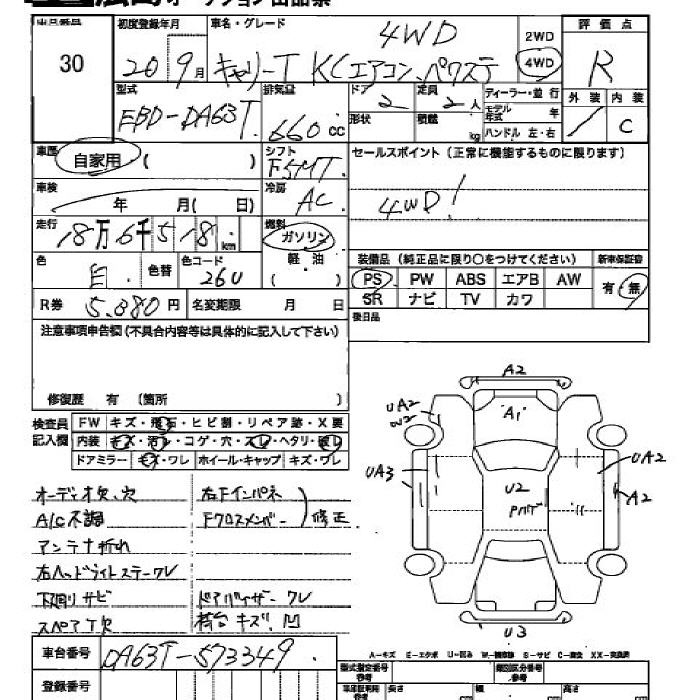 広島オークション出品票
出品番号
30
初度登録年月
20 9月
車名・グレード
4WD
キャリーT KCエアコン、パワステ
2WD
4WD
評価点
R
外装 内装
/ C
型式
EBD-DA63T
排気量
660cc
ドア
2
形状
定員
2人
積載
kg
ディーラー・並行
モデル年式 年
ハンドル 左・右
車歴
自家用 ( )
シフト
F5MT
セールスポイント(正常に機能するものに限ります)
4WD!
車検
年 月( 日)
冷房
AC
走行
18万6千518km
燃料
ガソリン
軽油
( )
色
白
色替
色コード
26U
装備品(純正品に限り○をつけてください)
新車保証書
PS PW ABS エアB AW
SR ナビ TV カワ
有・無
R券 5,880円 名変期限 月 日
後日品
注意事項申告欄(不具合内容等は具体的に記入して下さい)
修復歴 有 (箇所 )
検査員記入欄
FW キズ・飛石・ヒビ割・リペア跡・X要
内装 キズ・汚レ・コゲ・穴・スレ・ヘタリ・破レ
ドアミラー キズ・ワレ ホイール・キャップ キズ・ワレ
オーディオ欠、穴
A/C不調
アンテナ折れ
右ヘッドライトステーワレ
下廻りサビ
スペアT欠
右Fインパネ
Fクロスメンバー
修正
ドアバイザーワレ
荷台キズ、凹
A2
A1
UA2
W2
UA3
U2
UA2
A2
U3
A-キズ E-エクボ U-凹み W-補修跡 S-サビ C-腐食 XX-交換済
車台番号
DA63T-573349
登録番号
型式指定番号 参考
類別区分番号 参考
長さ
幅
高さ
cm cm cm